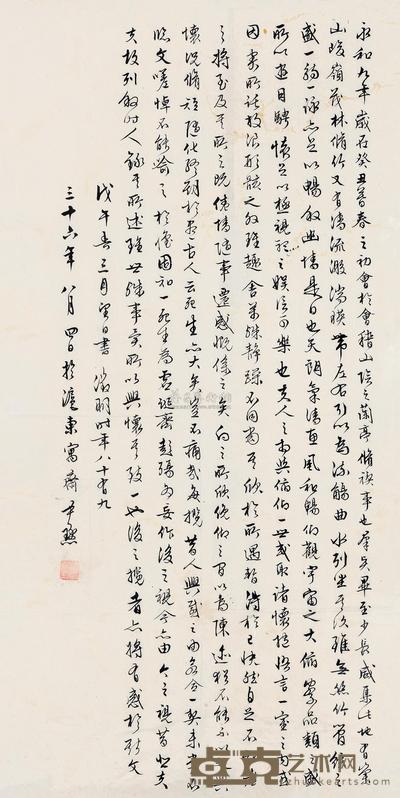 永和九年歲在癸丑暮春之初會於會稽山陰之蘭亭脩禊事也羣賢畢至少長咸集此地有崇
山峻嶺茂林脩竹又有清流激湍暎帶左右引以為流觴曲水列坐其次雖無絲竹管絃之
盛一觴一詠亦足以暢敘幽情是日也天朗氣清惠風和暢仰觀宇宙之大俯察品類之盛
所以遊目騁懷足以極視聽之娛信可樂也夫人之相與俯仰一世或取諸懷抱悟言一室之內或
因寄所託放浪形骸之外雖趣舍萬殊靜躁不同當其欣於所遇暫得於己快然自足不知老
之將至及其所之既倦情隨事遷感慨係之矣向之所欣俛仰之間以為陳迹猶不能不以之興
懷況脩短隨化終期於盡古人云死生亦大矣豈不痛哉每攬昔人興感之由若合一契未嘗不
臨文嗟悼不能喻之於懷固知一死生為虛誕齊彭殤為妄作後之視今亦由今之視昔悲
夫故列敘時人錄其所述雖世殊事異所以興懷其致一也後之攬者亦將有感於斯文
戊午春三月望日書 徵明時年八十有九
三十六年八月四日於滬東寓齋 尹默
卓克艺术网